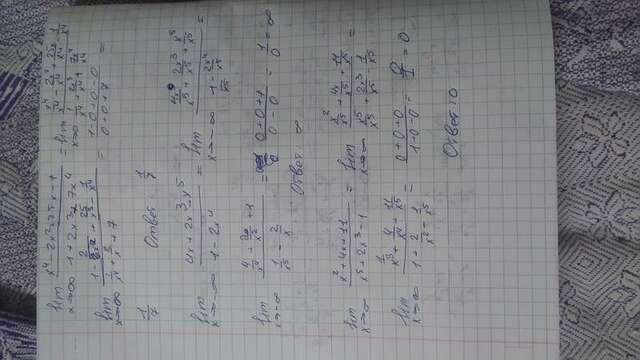 lim x→∞ (x⁴ - 2x² + 25x - 1)/(1 + 2x³ + 7x⁴) = lim x→∞ (x⁴/x⁴ - 2x²/x⁴ + 25x/x⁴ - 1/x⁴)/(1/x⁴ + 2x³/x⁴ + 7x⁴/x⁴)
lim x→∞ (1 - 2/x² + 25/x³ - 1/x⁴)/(1/x⁴ + 2/x + 7) = (1-0+0-0)/(0+0+7) =
1/7 Ответ: 1/7
lim x→-∞ (4x + 2x³ + x⁵)/(1 - 2x⁴) = lim x→-∞ (4x/x⁵ + 2x³/x⁵ + x⁵/x⁵)/(1/x⁵ - 2x⁴/x⁵) =
lim x→-∞ (4/x⁴ + 2/x² + 1)/(1/x⁵ - 2/x) = (0+0+1)/(0-0) = 1/0 = ∞
Ответ ∞
lim x→∞ (x² + 4x + 11)/(x⁵ + 2x³ - 1) = lim x→∞ (x²/x⁵ + 4x/x⁵ + 11/x⁵)/(x⁵/x⁵ + 2x³/x⁵ - 1/x⁵) =
lim x→∞ (1/x³ + 4/x⁴ + 11/x⁵)/(1 + 2/x² - 1/x⁵) = (0+0+0)/(1+0-0) = 0/1 = 0
Ответ: 0